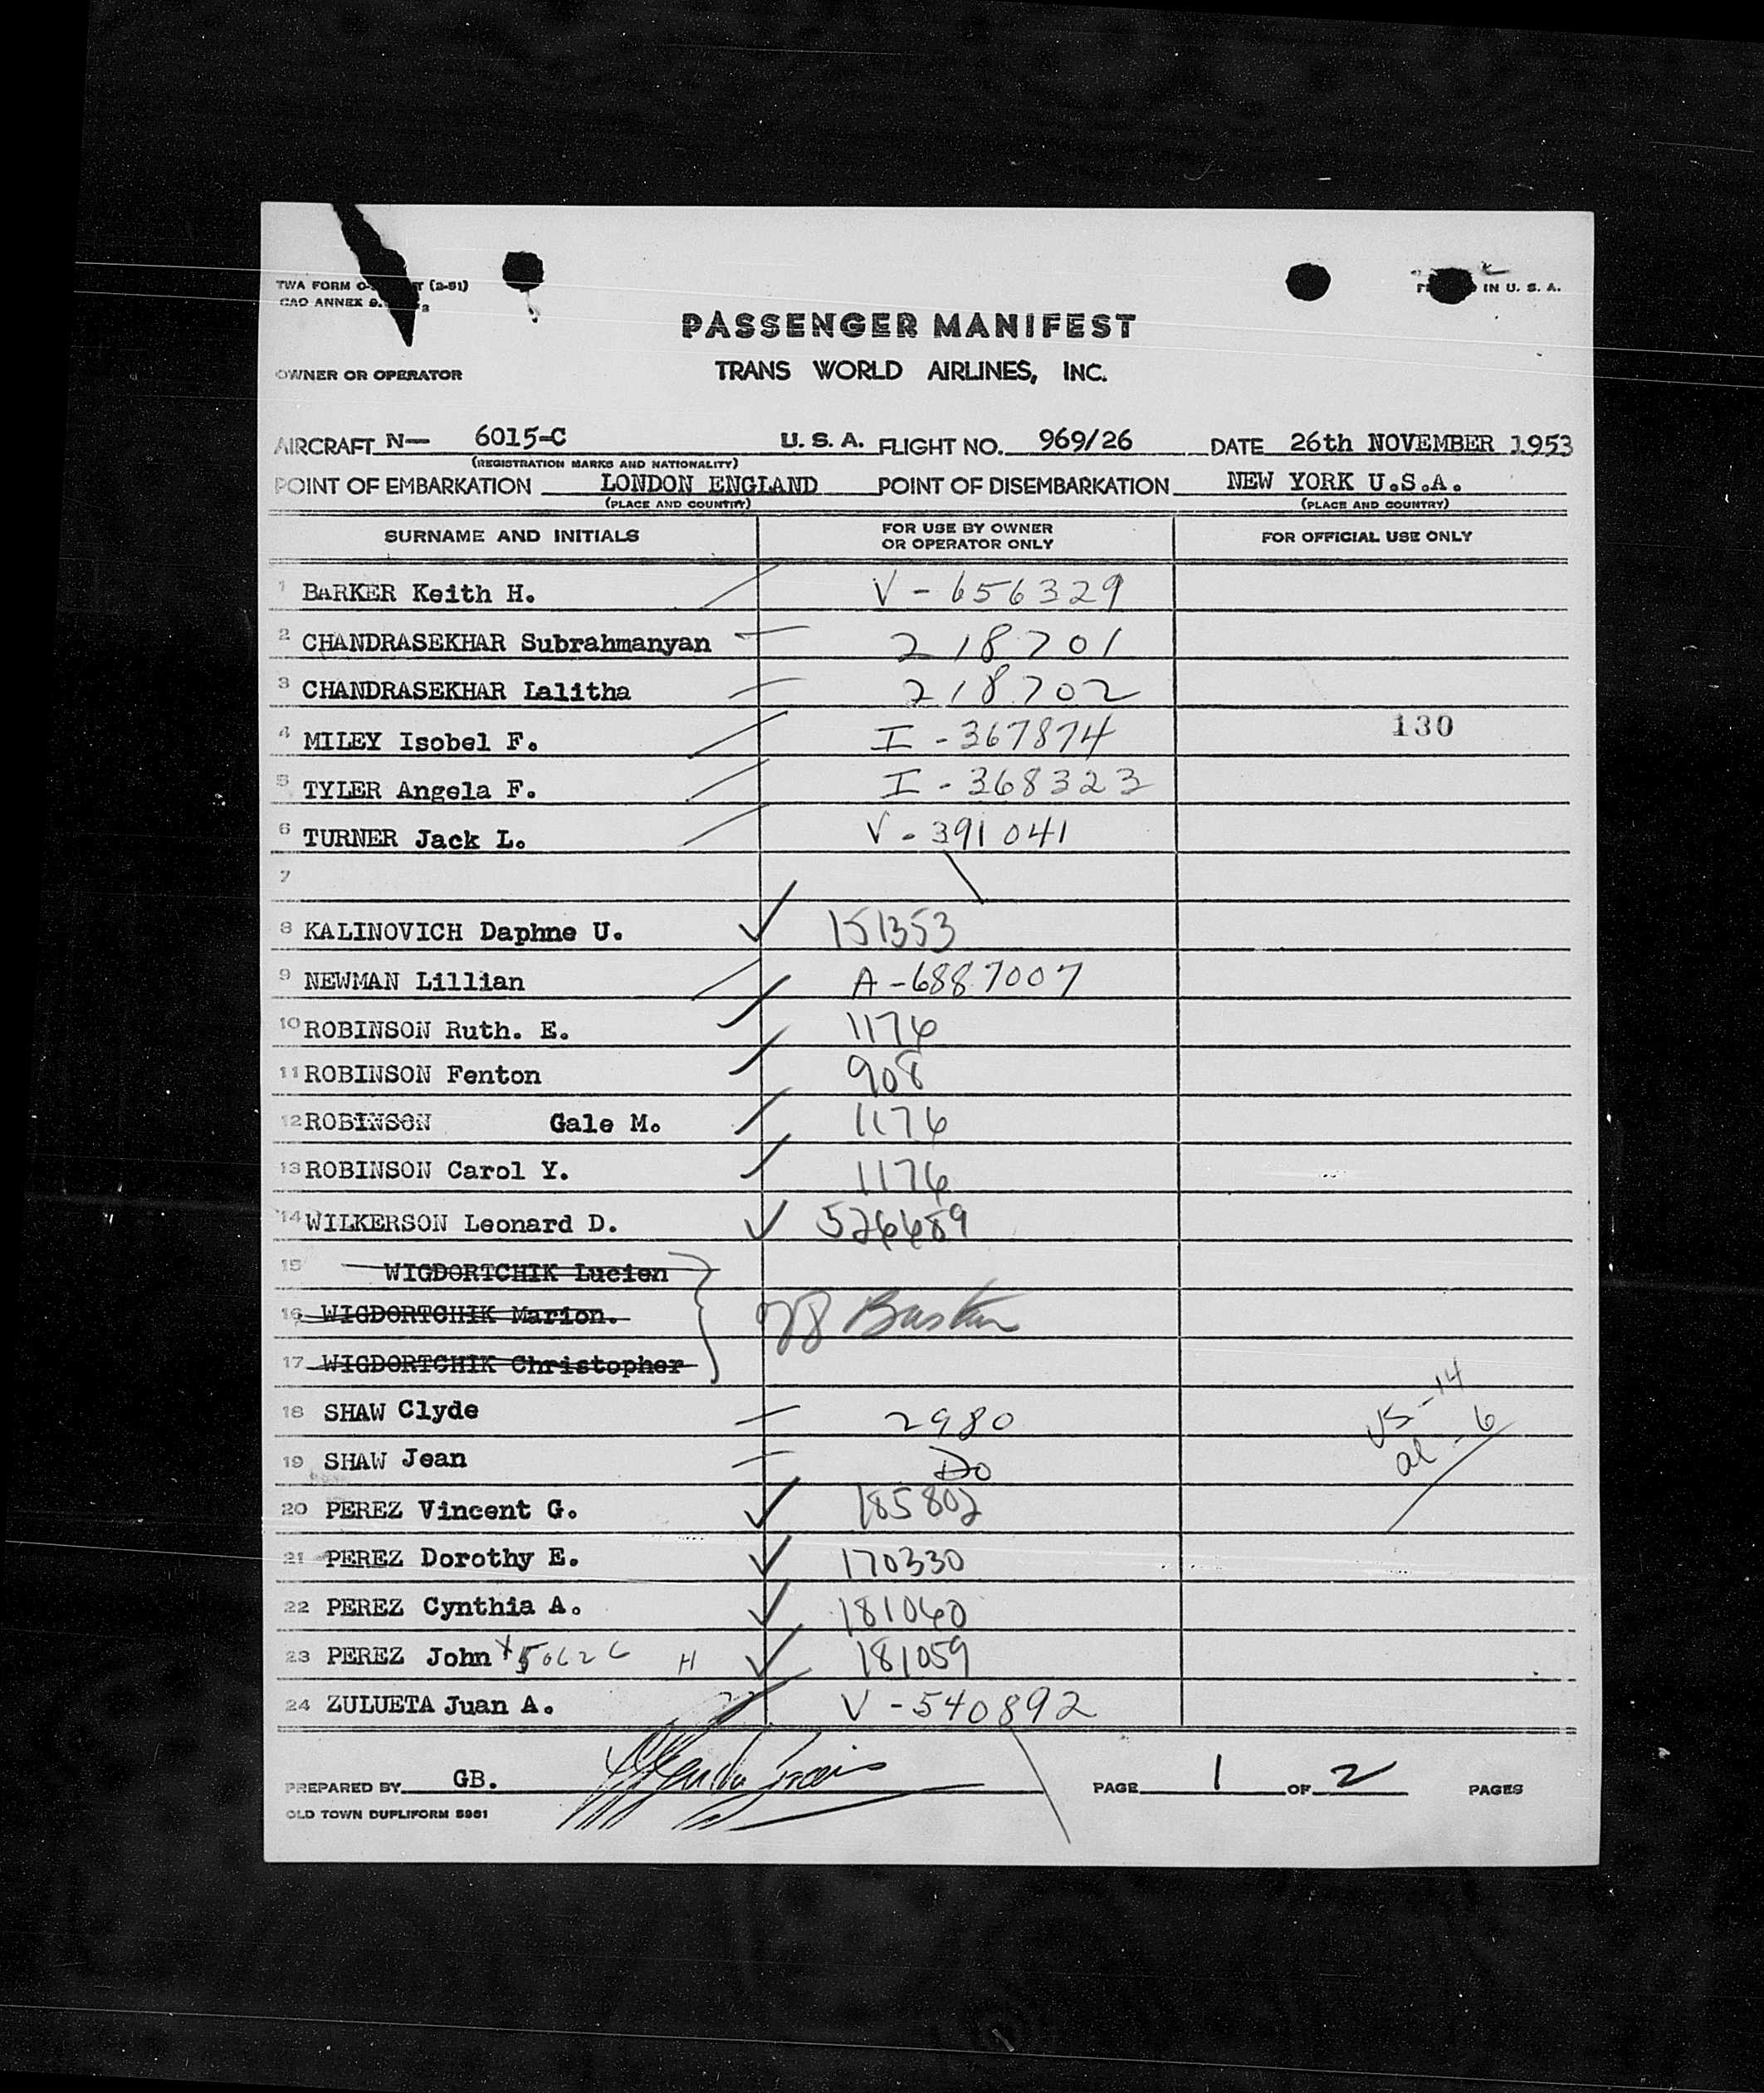 TWA FORM (2-51)
CAO ANNEX 9.
IN U. S. A.
PASSENGER MANIFEST
OWNER OR OPERATOR TRANS WORLD AIRLINES, INC.
AIRCRAFT N— 6015-C U. S. A. FLIGHT NO. 969/26 DATE 26th NOVEMBER 1953
(REGISTRATION MARKS AND NATIONALITY)
POINT OF EMBARKATION LONDON ENGLAND POINT OF DISEMBARKATION NEW YORK U.S.A.
(PLACE AND COUNTRY) (PLACE AND COUNTRY)
SURNAME AND INITIALS FOR USE BY OWNER OR OPERATOR ONLY FOR OFFICIAL USE ONLY
1 BARKER Keith H. V - 656329
2 CHANDRASEKHAR Subrahmanyan 218701
3 CHANDRASEKHAR Lalitha 218702
4 MILEY Isobel F. I - 367874 130
5 TYLER Angela F. I - 368323
6 TURNER Jack L. V - 391041
7
8 KALINOVICH Daphne U. 151353
9 NEWMAN Lillian A - 6887007
10 ROBINSON Ruth. E. 1176
11 ROBINSON Fenton 908
12 ROBINSON Gale M. 1176
13 ROBINSON Carol Y. 1176
14 WILKERSON Leonard D. 526689
15 WIGDORTCHIK Lucien
16 WIGDORTCHIK Marion.
17 WIGDORTCHIK Christopher
18 SHAW Clyde 2980 US - 14
19 SHAW Jean Do al - 6
20 PEREZ Vincent G. 185802
21 PEREZ Dorothy E. 170330
22 PEREZ Cynthia A. 181060
23 PEREZ John H 181059
24 ZULUETA Juan A. V - 540892
PREPARED BY GB. PAGE 1 OF 2 PAGES
OLD TOWN DUPLIFORM 5961